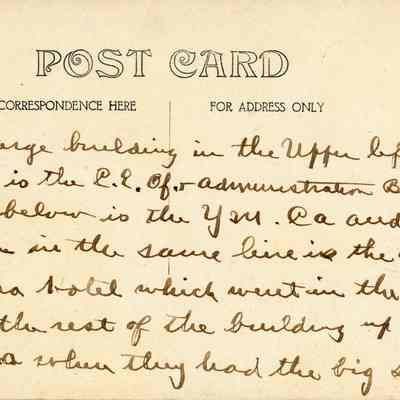 POST CARD
CORRESPONDENCE HERE FOR ADDRESS ONLY
arge building in the Upper lef
is the C.E. Of. & administration B
below is the Y M. Ca and
in the same line is the
Hotel which went in the
the rest of the building up
when they had the big s